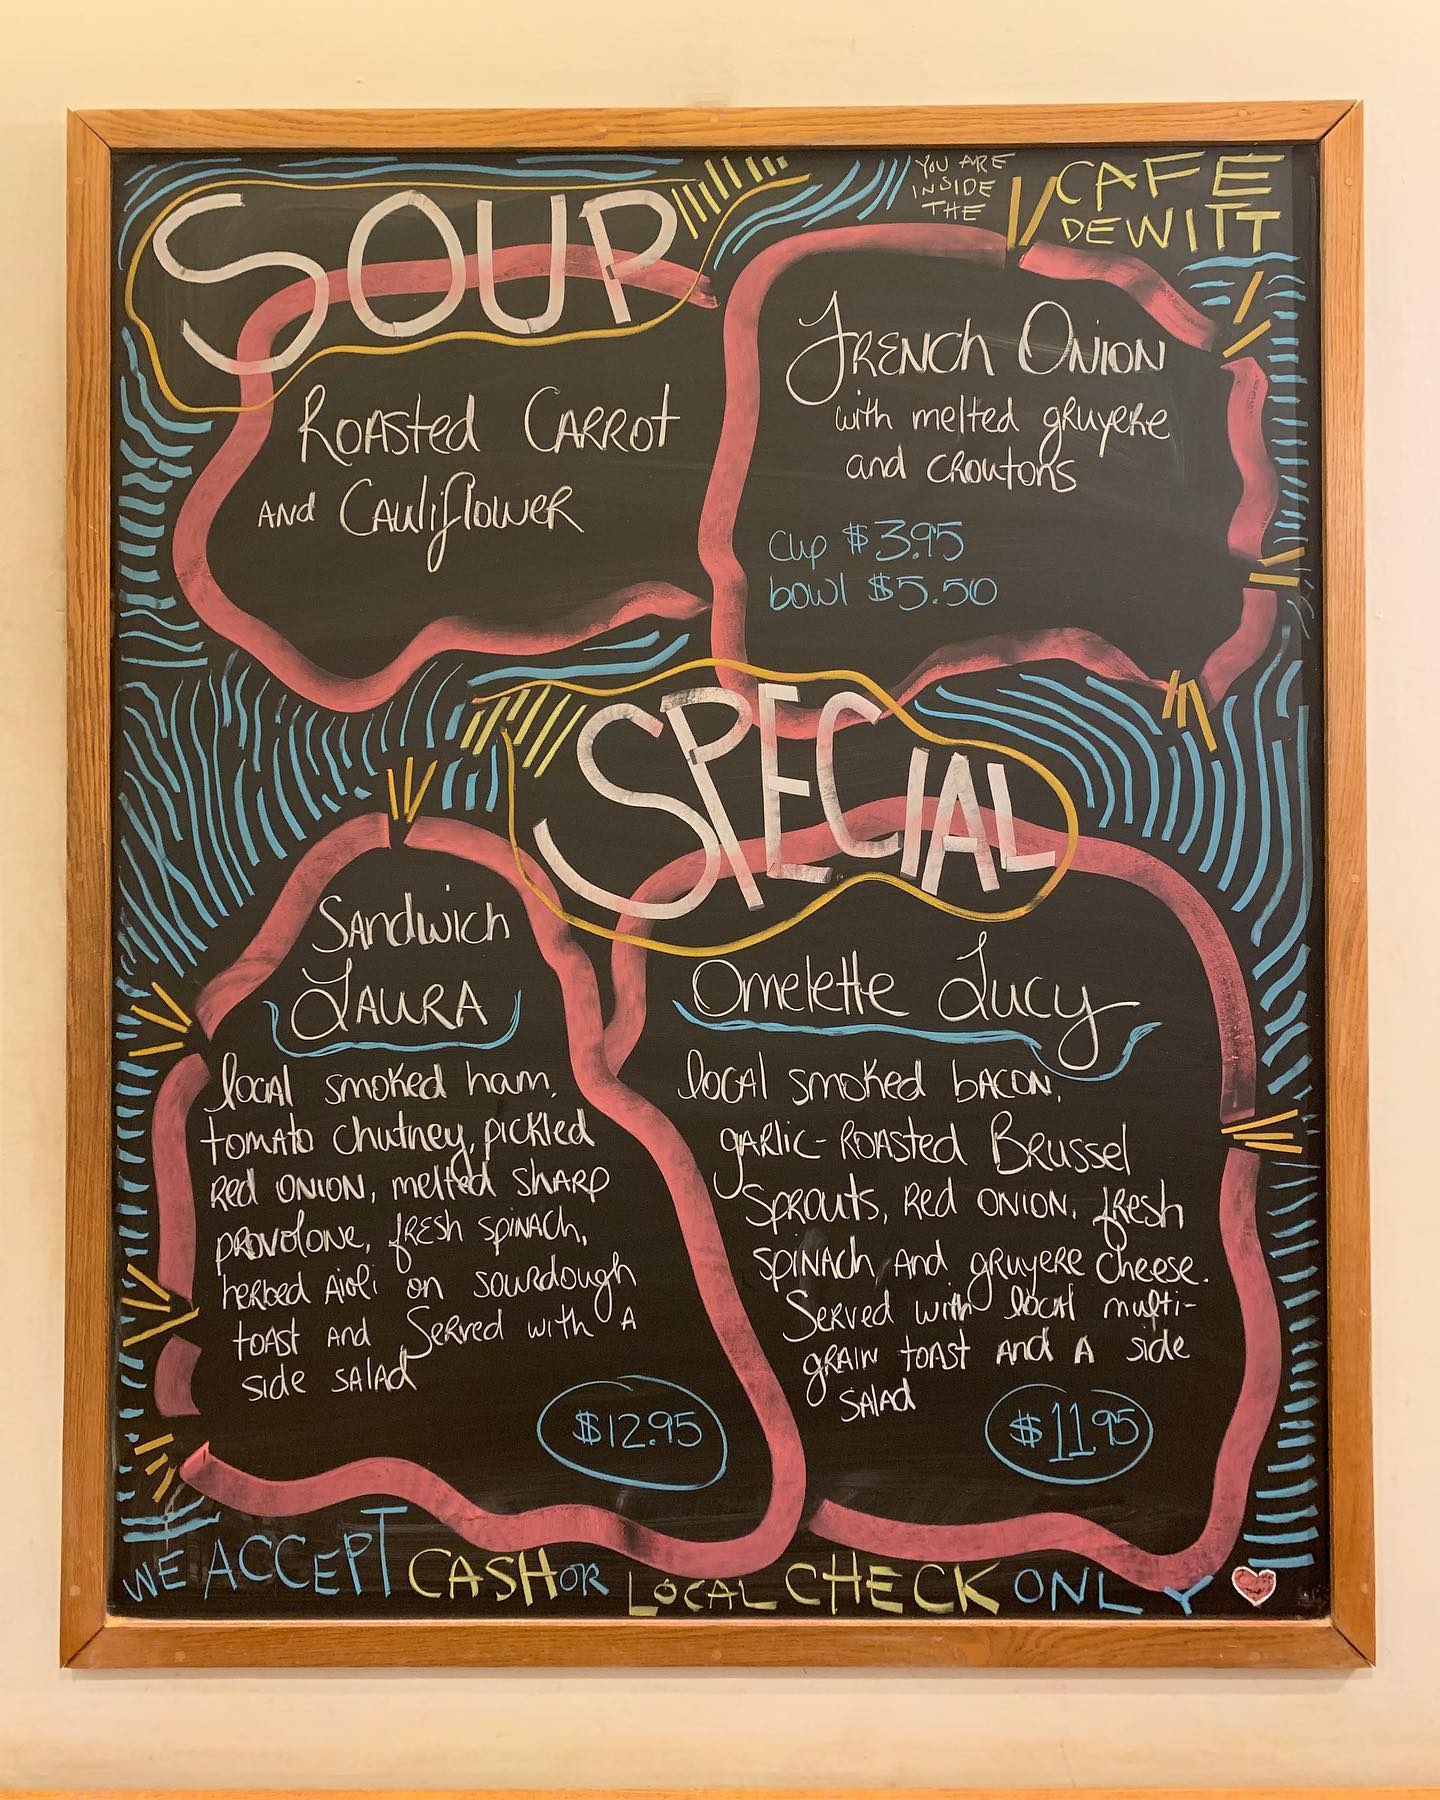 YOU ARE
INSIDE
THE
CAFE
DEWITT
SOUP
Roasted Carrot
and Cauliflower
French Onion
with melted gruyere
and croutons
cup $3.95
bowl $5.50
SPECIAL
Sandwich
Laura
local smoked ham,
tomato chutney, pickled
red onion, melted sharp
provolone, fresh spinach,
herbed aioli on sourdough
toast and Served with a
side salad
$12.95
Omelette Lucy
local smoked bacon,
garlic-roasted Brussel
Sprouts, red onion, fresh
spinach and gruyere cheese.
Served with local multi-
grain toast and a side
salad
$11.95
WE ACCEPT CASH OR LOCAL CHECK ONLY